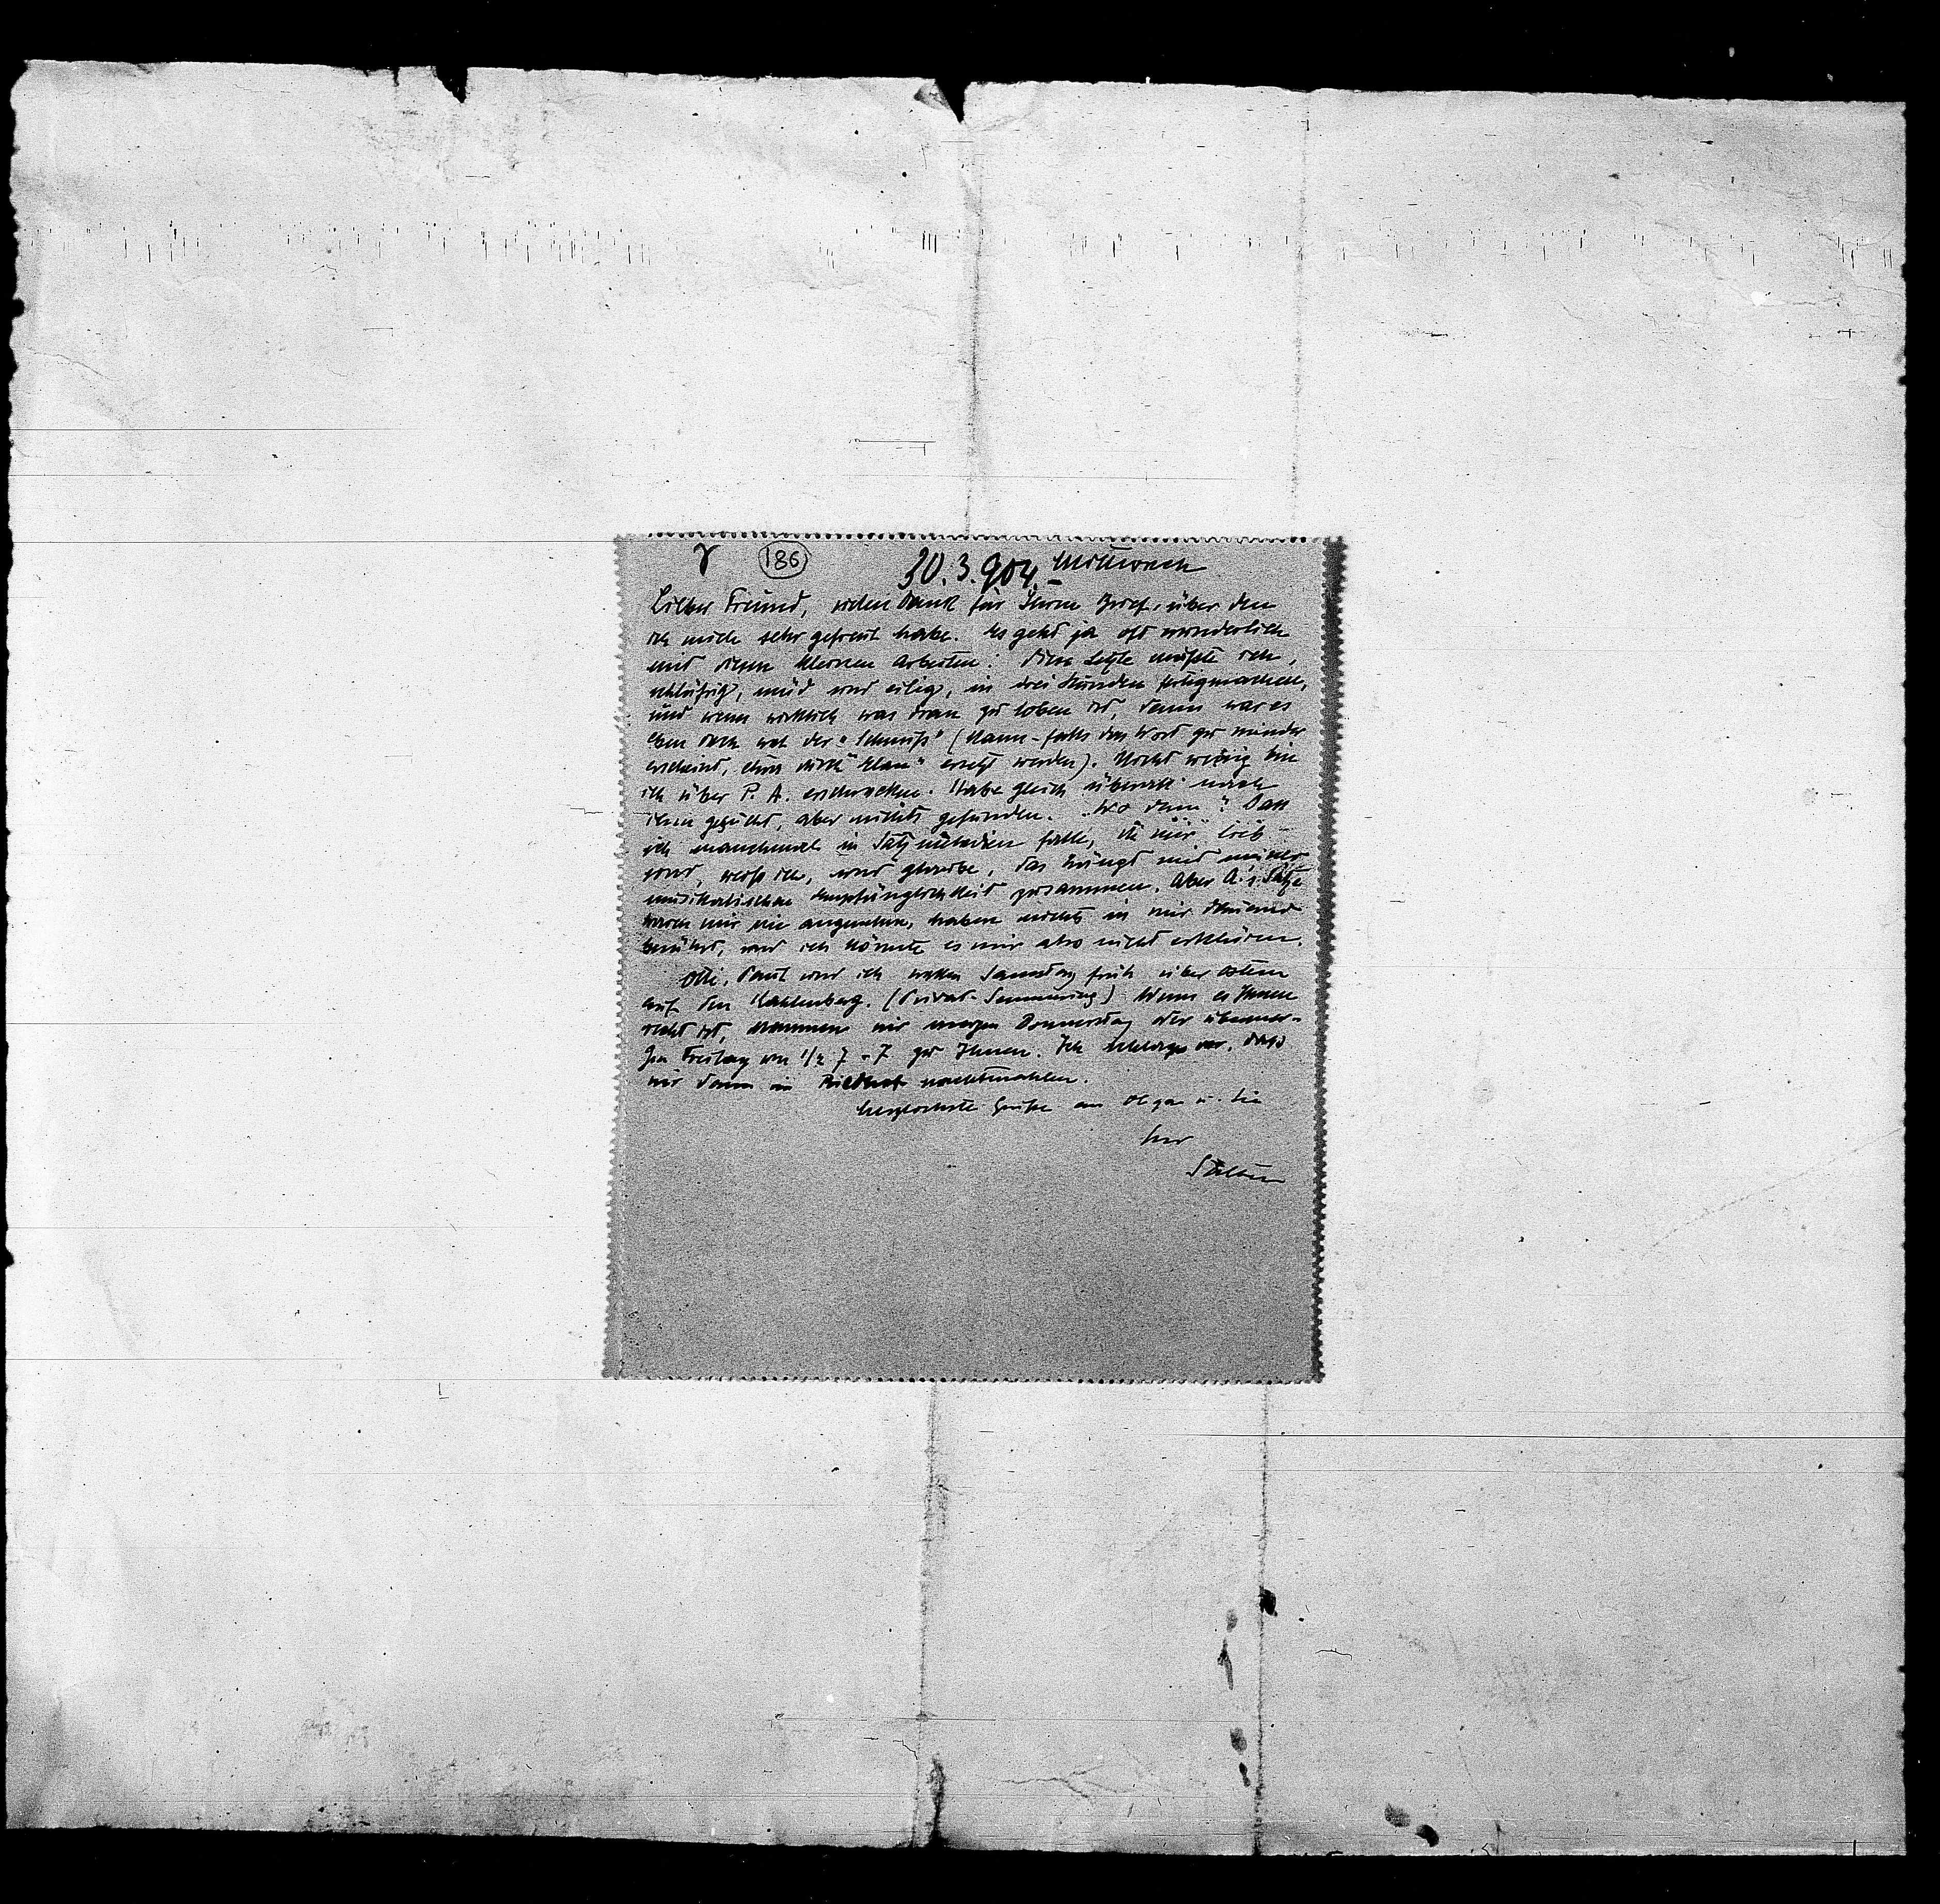 186 30.3.904. Mittwoch
Lieber Freund, vielen Dank für Ihren Brief, über den
ich mich sehr gefreut habe. Es geht ja oft wunderlich
mit diesen kleinen Arbeiten: diese letzte mußte ich,
schläfrig, müd und eilig, in drei Stunden fertigmachen,
und wenn wirklich was dran zu loben ist, dann war es
eben doch wol der „Schmiß" (kann – falls das Wort zu minder
erscheint, durch „Elan" ersetzt werden). Nicht wenig bin
ich über P. A. erschrocken. Habe gleich überall nach
ihm gesucht, aber nichts gefunden. „Wo denn"? Dass
ich manchmal in Satzmelodien falle, die mir lieb
sind, weiß ich, und glaube, das hängt mit meiner
musikalischen Empfänglichkeit zusammen. Aber A.'s Sätze
waren mir nie angenehm, haben nichts in mir dauernd
berührt, und ich könnte es mir also nicht erklären.
Otti, Paul und ich wollen Samstag früh über Ostern
auf den Kahlenberg. (Privat-Semmering) Wenn es Ihnen
recht ist, kommen wir morgen Donnerstag oder übermor-
gen Freitag um 1/2 7 – 7 zu Ihnen. Ich schlage vor, dass
wir dann im Riedhof nachtmahlen.
herzlichste Grüße an Olga u. Sie
Ihr
Salten